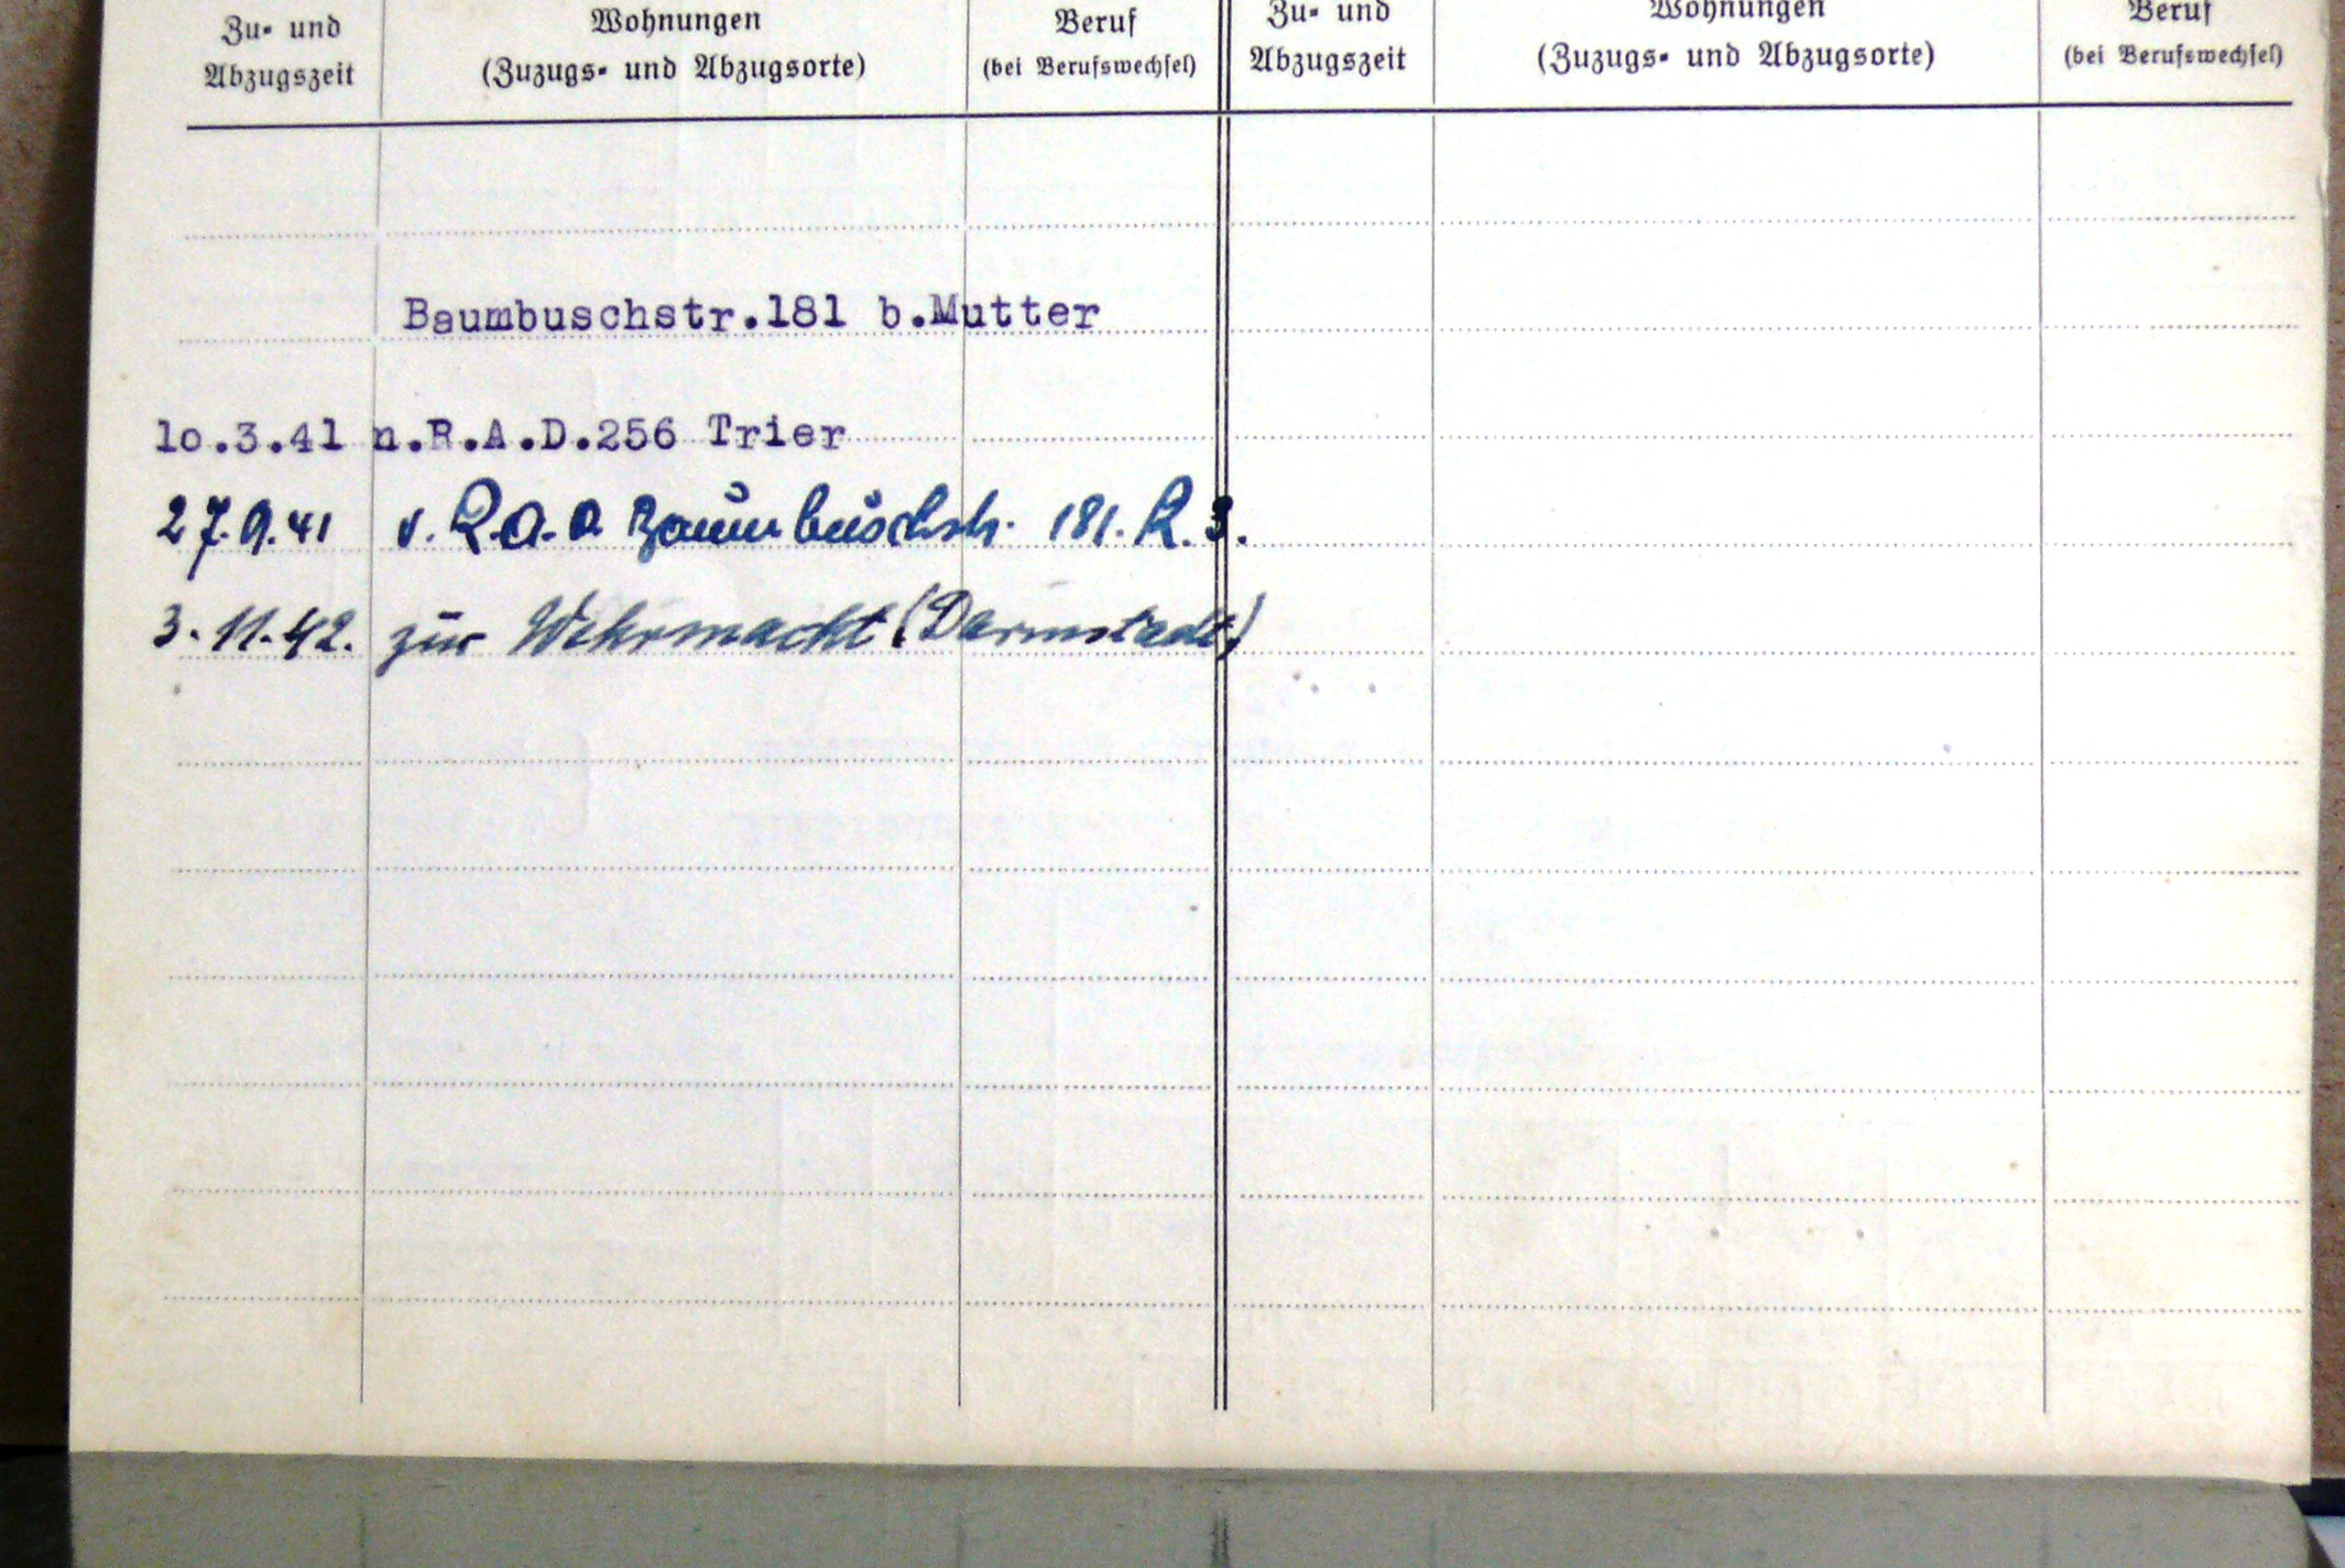 Zu- und Abzugszeit
Wohnungen (Zuzugs- und Abzugsorte)
Beruf (bei Berufswechsel)
Zu- und Abzugszeit
Wohnungen (Zuzugs- und Abzugsorte)
Beruf (bei Berufswechsel)
Baumbuschstr.181 b.Mutter
lo.3.41 n.R.A.D.256 Trier
27.9.41 v. Baumbüschstr. 181.
3.11.42. zŭr Wehrmacht (Darmstadt)